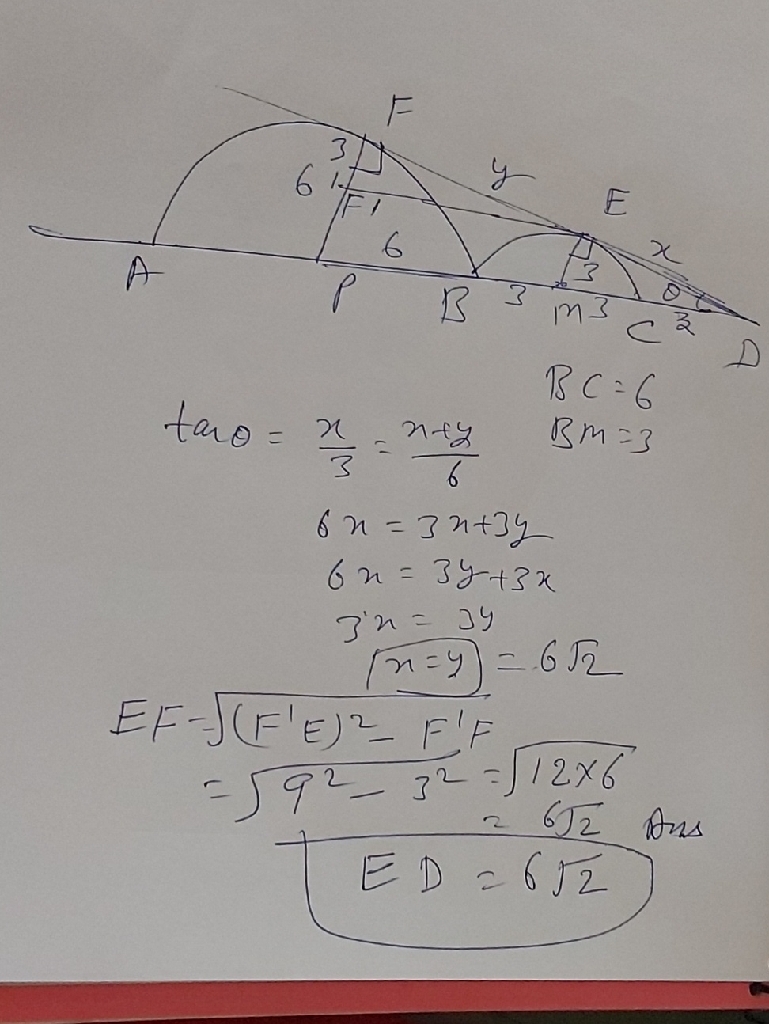 F
3
6
F'
y
E
6
3
x
θ
A
P
B
3
m
3
C
3
D
BC = 6
tanθ = x/3 = x+y/6
BM = 3
6x = 3x+3y
6x = 3y+3x
3x = 3y
x=y = 6√2
EF = √(F'E)² - F'F
= √9² - 3² = √12×6
= 6√2 Ans
ED = 6√2